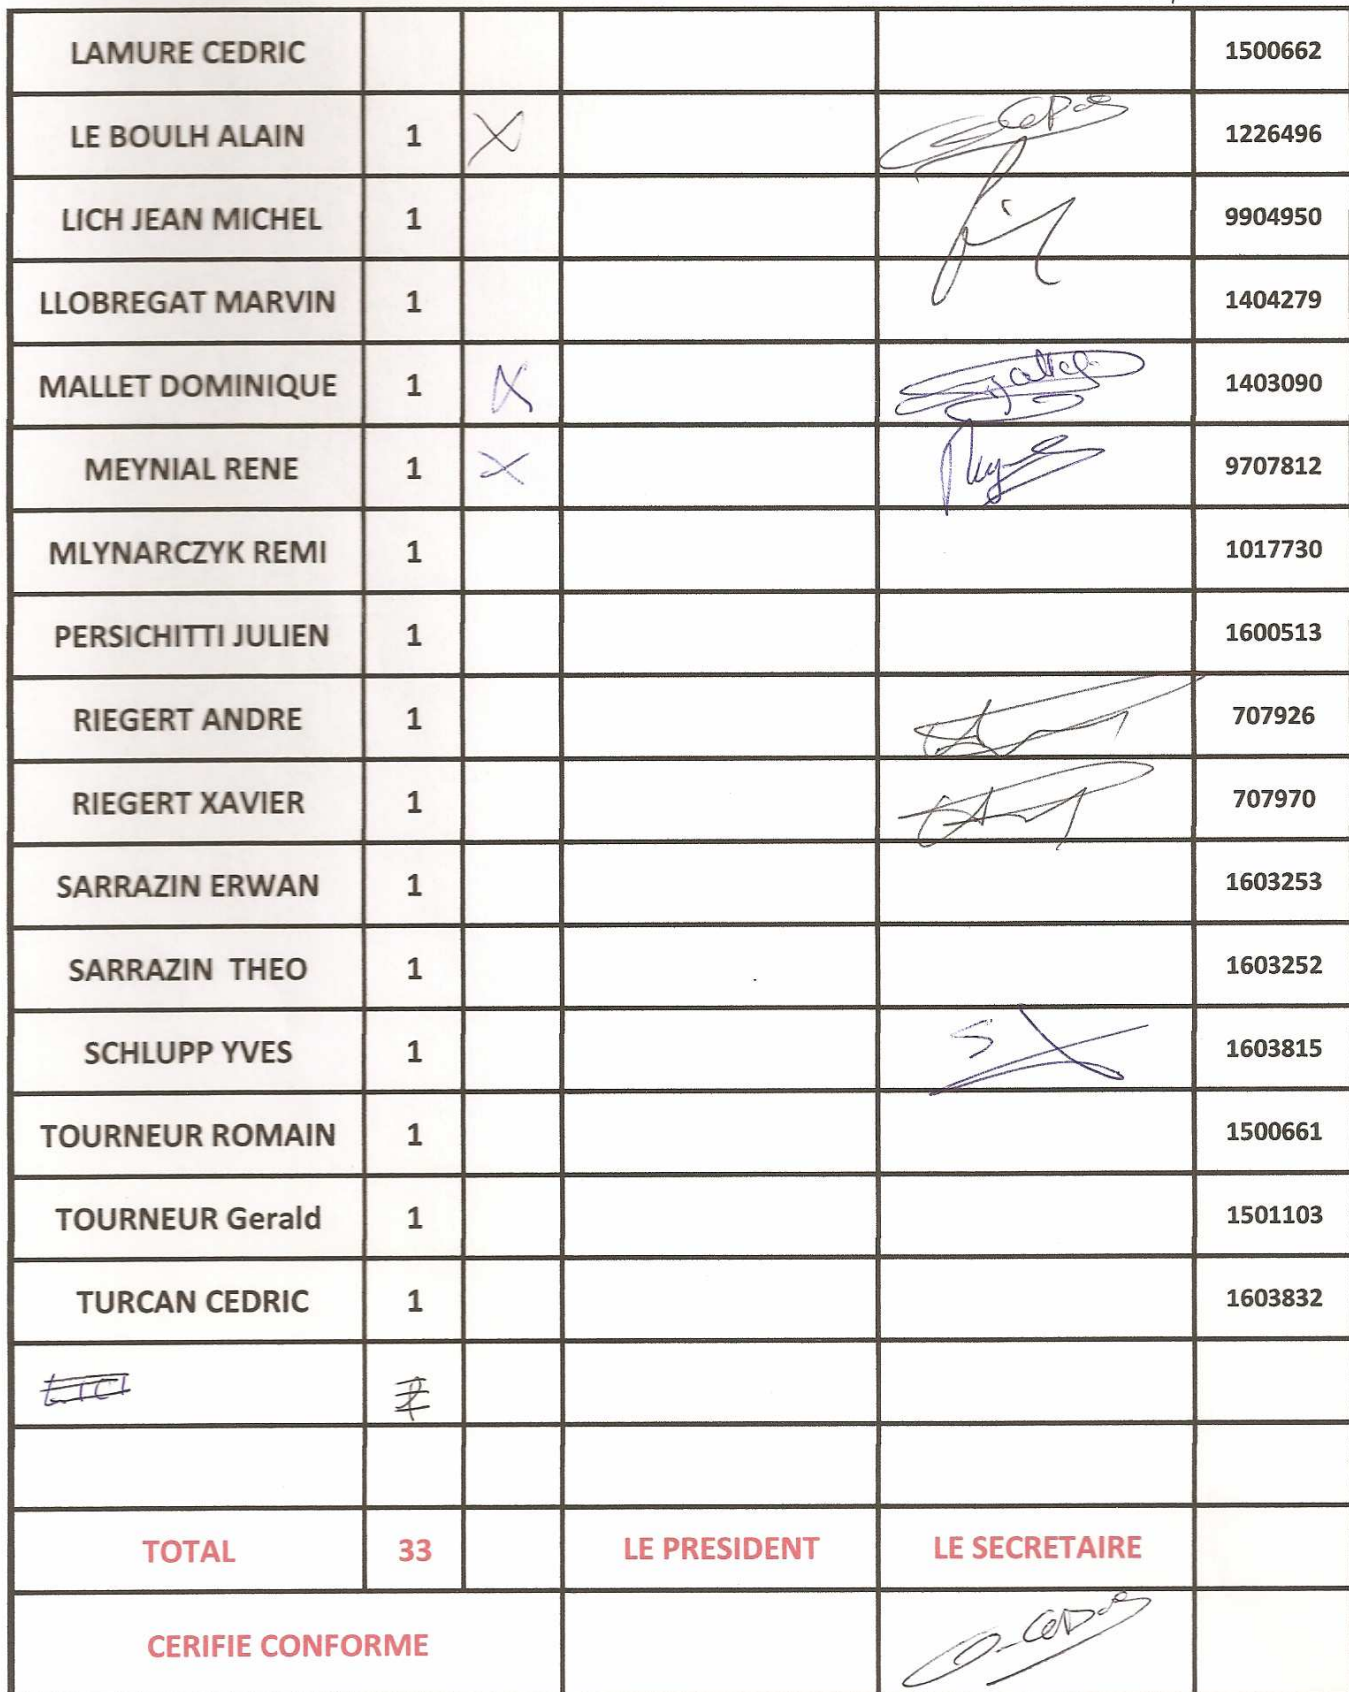 LAMURE CEDRIC 1500662
LE BOULH ALAIN 1 X 1226496
LICH JEAN MICHEL 1 9904950
LLOBREGAT MARVIN 1 1404279
MALLET DOMINIQUE 1 X 1403090
MEYNIAL RENE 1 X 9707812
MLYNARCZYK REMI 1 1017730
PERSICHITTI JULIEN 1 1600513
RIEGERT ANDRE 1 707926
RIEGERT XAVIER 1 707970
SARRAZIN ERWAN 1 1603253
SARRAZIN THEO 1 1603252
SCHLUPP YVES 1 1603815
TOURNEUR ROMAIN 1 1500661
TOURNEUR Gerald 1 1501103
TURCAN CEDRIC 1 1603832
TOTAL 33 LE PRESIDENT LE SECRETAIRE
CERIFIE CONFORME